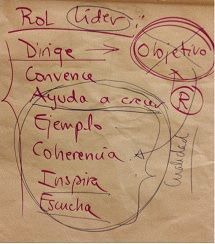 Rol Líder:
Dirige → Objetivo
Convence
Ayuda a crecer
Ejemplo
Coherencia
Inspira
Escucha
R